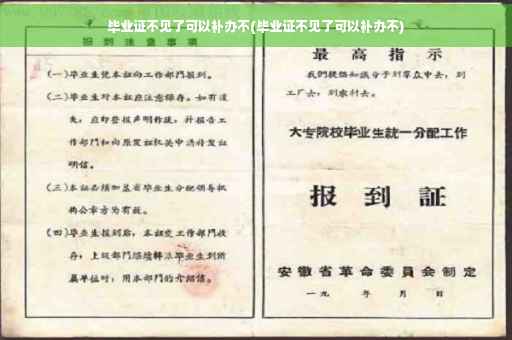 毕业证不见了可以补办不(毕业证不见了可以补办不)
报到注意事项
(一)毕业生凭本证向工作部门报到。
(二)毕业生对本证应注意保存。如有遗
失,应即登报声明作废,并报告工
作部门和向原发证机关申请补发证
明信。
(三)本证必须加盖省毕业生分配领导机
构公章方为有效。
(四)毕业生报到后,本证交工作部门收
存;上级部门继续转派毕业生到所
属单位时,用本部门的介绍信。
最高指示
我们提倡知识分子到群众中去,到
工厂去,到农村去。
大专院校毕业生統一分配工作
报到証
安徽省革命委員会制定
一九 年 月 日